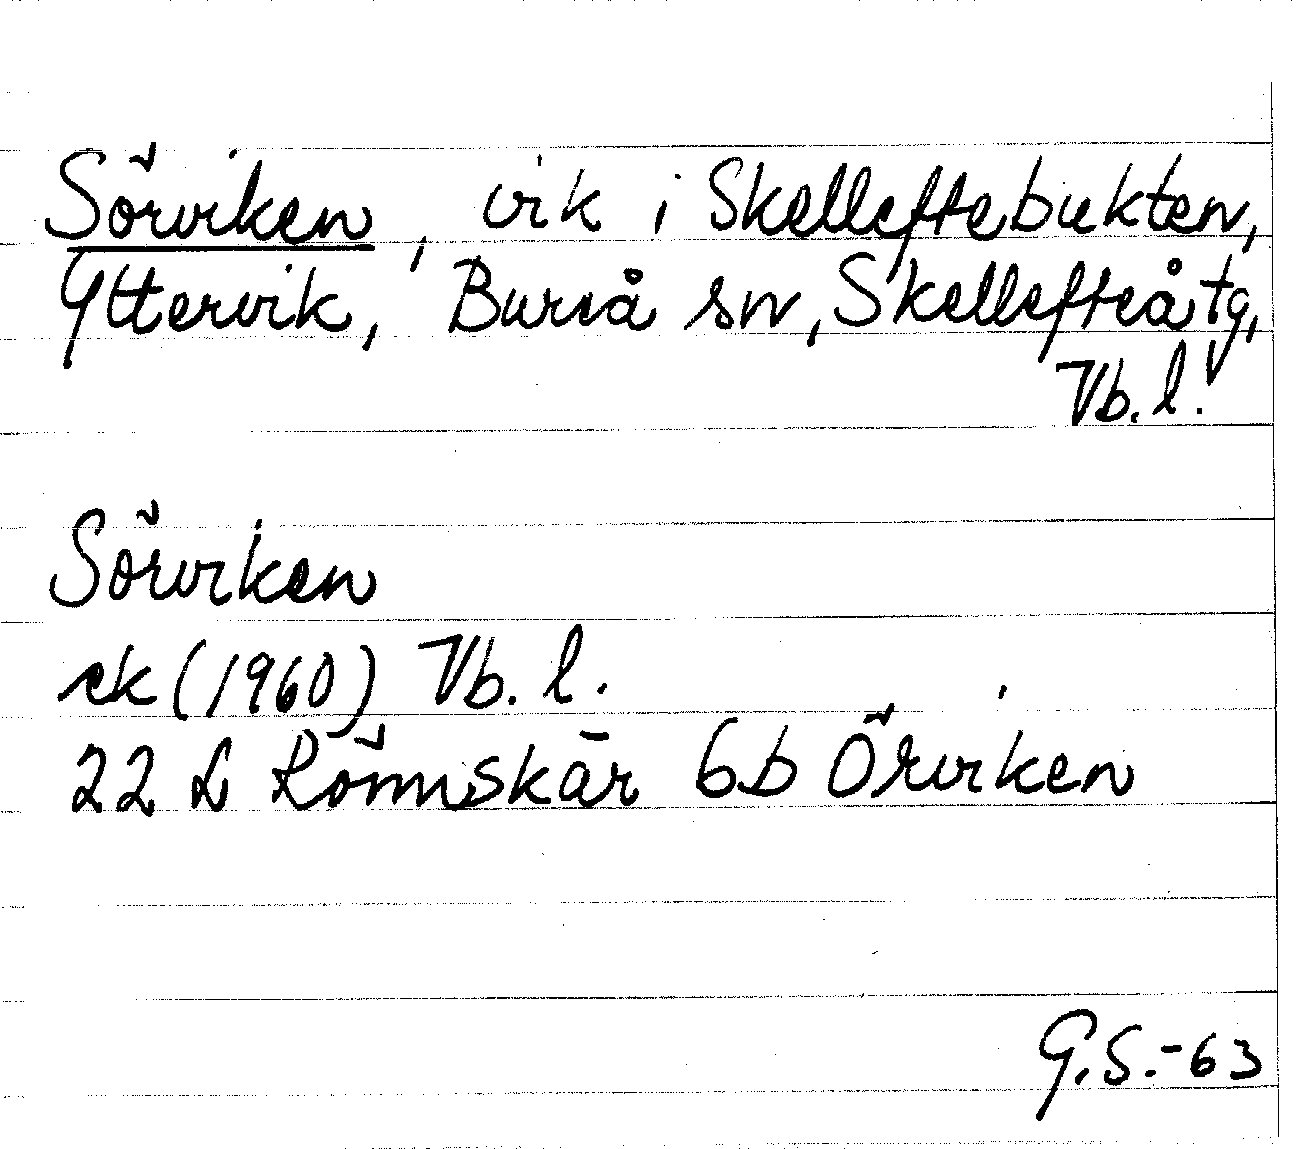 Sörviken, vik i Skelleftebukten,
Yttervik, Bureå sn, Skellefteå tg,
Vb. l.
Sörviken
ek (1960) Vb. l.
22 L Rönnskär 6b Örviken
G.S.-63